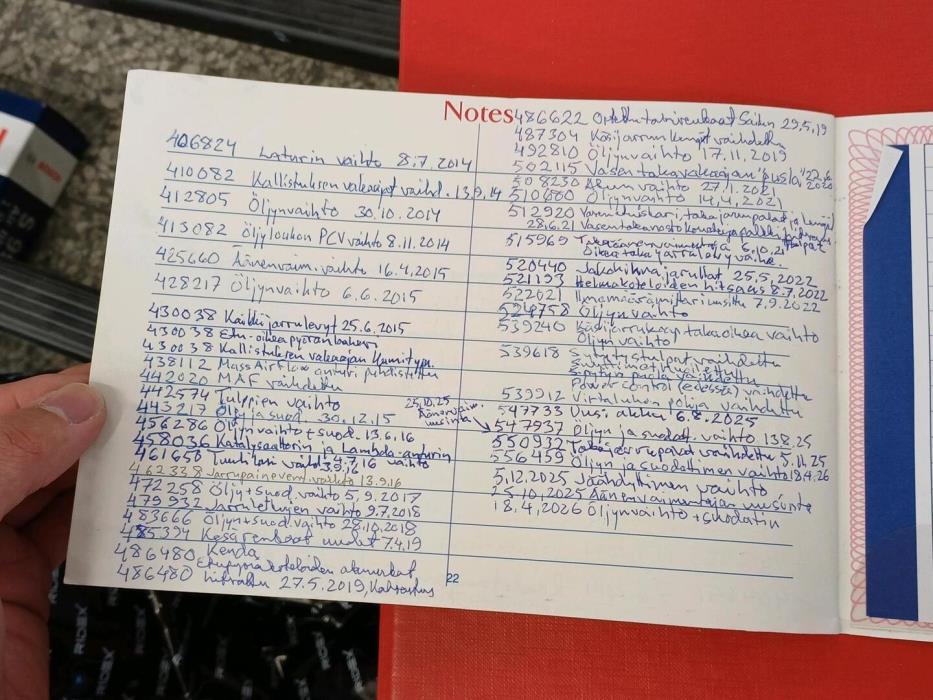 Notes
406824 Laturin vaihto 8.7.2014
410082 Kallistuksen vakaajat vaihd. 13.9.14
412805 Öljynvaihto 30.10.2014
413082 Öljyloukon PCV vaihto 8.11.2014
425660 Äänenvaim. vaihto 16.4.2015
428217 Öljynvaihto 6.6.2015
430038 Kaikki jarrulevyt 25.6.2015
430038 Etu-oikea pyöränlaakeri
430038 Kallistuksen vakaajan kumityyny
438112 Mass Airflow anturi puhdistettu
442020 MAF vaihdettu
442574 Tulppien vaihto
443217 Öljy ja suod. 30.12.15
456286 Öljynvaihto + suod. 13.6.16
458036 Katalysaattorin ja Lambda-anturin
461650 Tuulilasi vaihd. 7.16 vaihto
462338 vaihto 13.9.16
472258 Öljy + suod. vaihto 5.9.2017
479932 Jarruletkujen vaihto 9.7.2018
483666 Öljyn + suod. vaihto 28.10.2018
485394 Kesärenkaat uudet 7.4.19
486480 Kenda
486480 27.5.2019, Katsastus
25.10.25
Äänenvaim.
uusinta
22
486622 29.5.19
487304 Käsijarrun kengät vaihdettu
492810 Öljynvaihto 17.11.2019
502115 Vasen takavakaajan pusla 22.6.2020
508230 Akun vaihto 27.1.2021
510680 Öljynvaihto 14.4.2021
512920
28.6.21
515969 Takaäänenvaimentaja 6.10.21
Oikea taka jarrulevy vaihe.
520440 Jakohihna ja rullat 25.5.2022
521193 Helmakoteloiden hitsaus 8.7.2022
522021 Ilmamäärämittari uusittu 7.9.2022
524758 Öljynvaihto
539240 Käsijarrukaap. taka oikea vaihto
Öljyn vaihto
539618 Sytytystulpat vaihdettu
Power control vaihdettu
539912 Virtalukon pohja vaihdettu
547733 Uusi akku 6.8.2025
547937 Öljyn ja suodat. vaihto 13.8.25
550932 Takajarrupalat vaihdettu 5.11.25
556459 Öljyn ja suodattimen vaihto 18.4.26
5.12.2025 Jäähdyttimen vaihto
25.10.2025 Äänenvaimentajan uusinta
18.4.2026 Öljynvaihto + suodatin
RIDEX